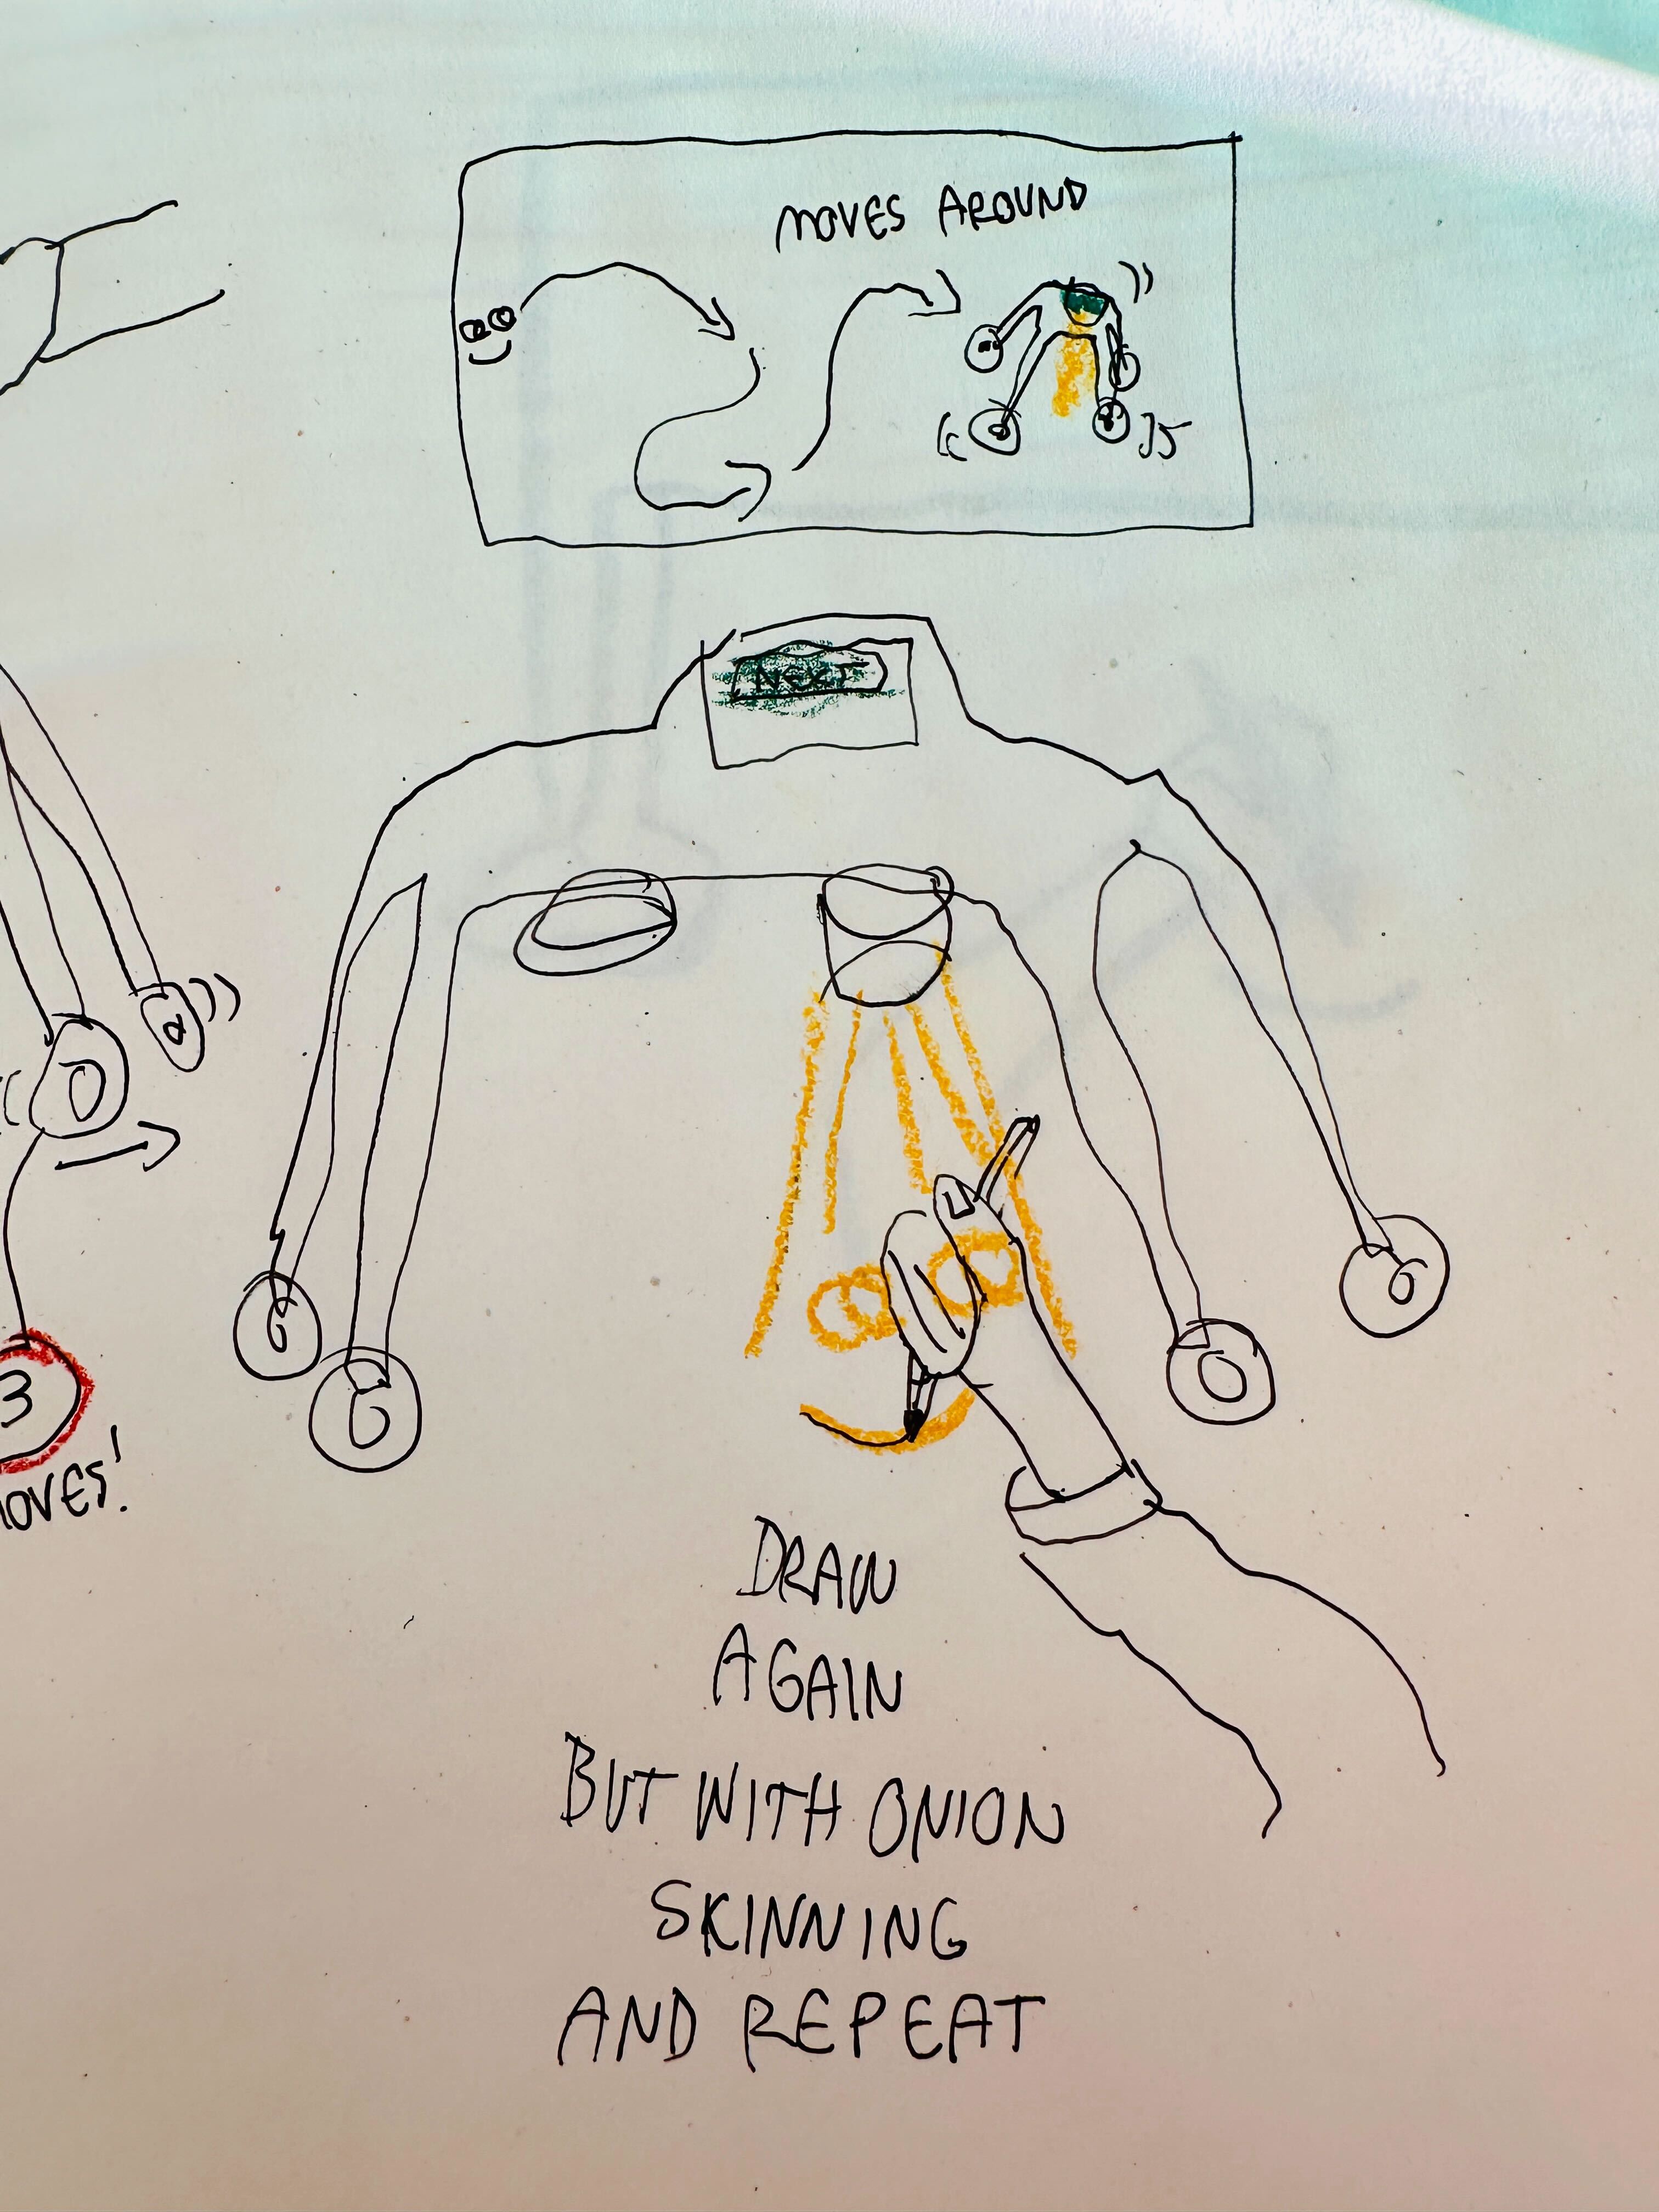 MOVES AROUND
NEXT
3
OVES!
DRAW
AGAIN
BUT WITH ONION
SKINNING
AND REPEAT